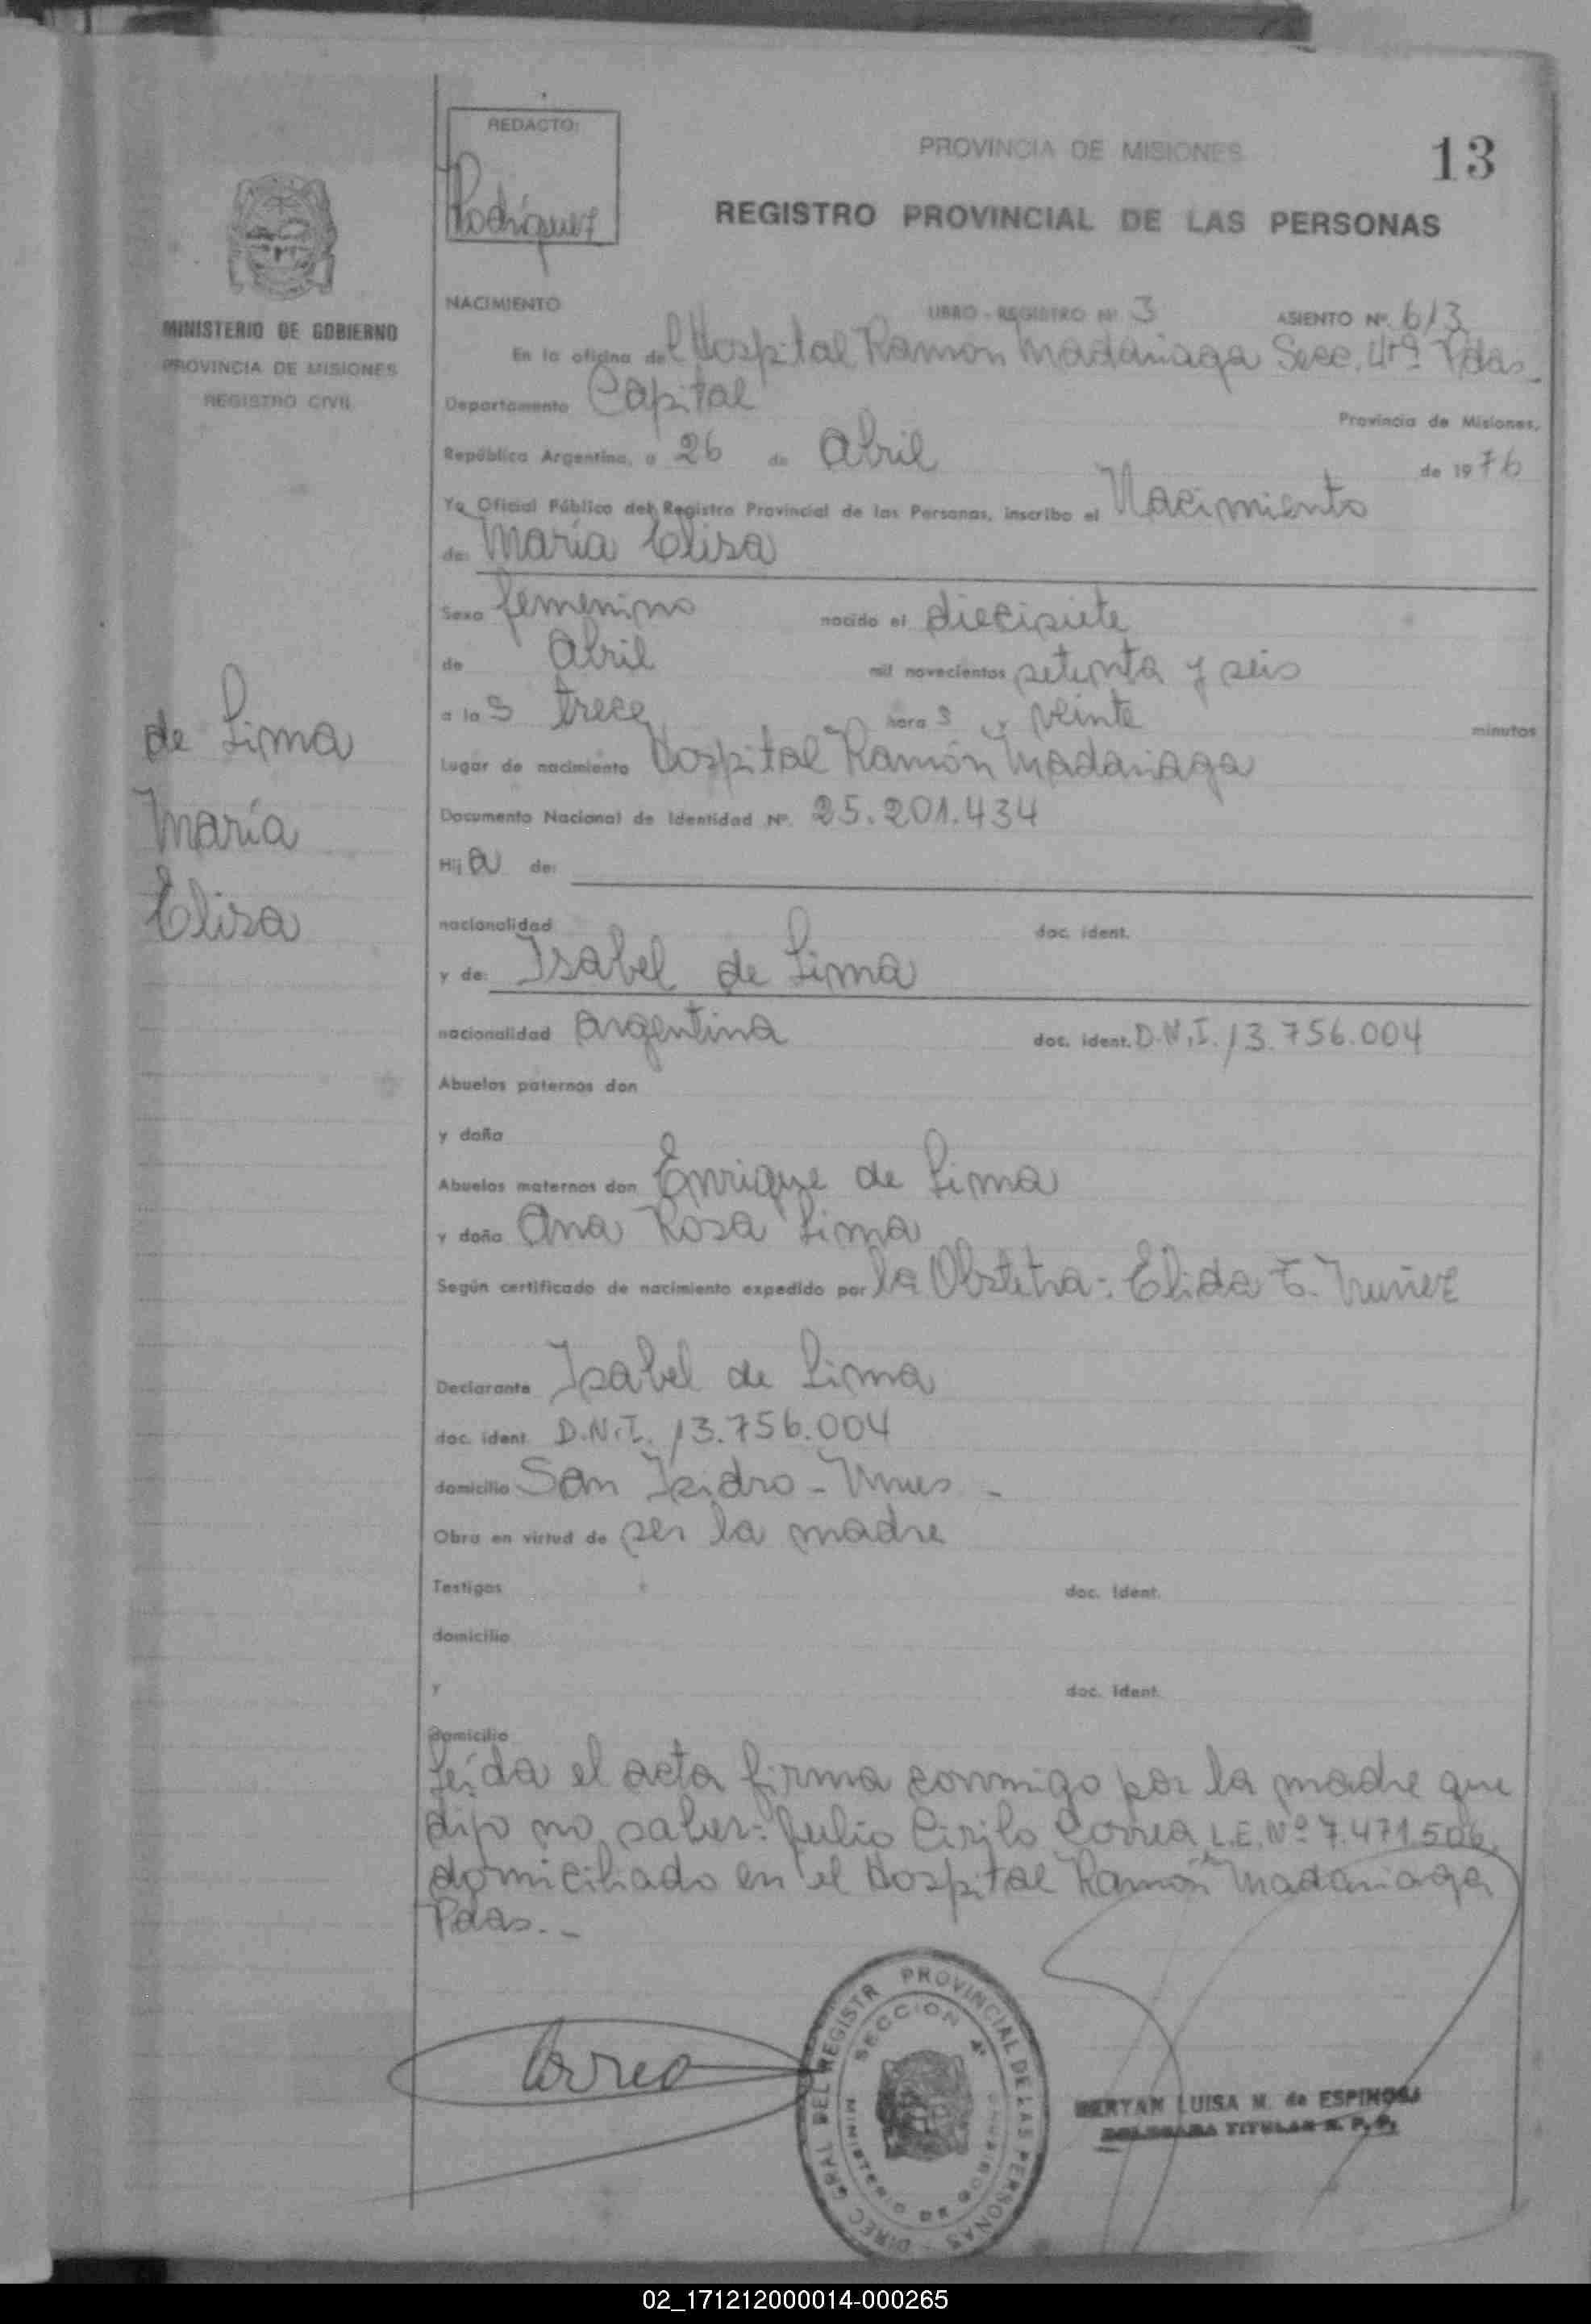 REDACTO:
Rodríguez
PROVINCIA DE MISIONES
13
REGISTRO PROVINCIAL DE LAS PERSONAS
MINISTERIO DE GOBIERNO
PROVINCIA DE MISIONES
REGISTRO CIVIL
NACIMIENTO LIBRO - REGISTRO Nº 3 ASIENTO Nº. 613
En la oficina del Hospital Ramón Madariaga Secc. 4ta Pdas.
Departamento Capital Provincia de Misiones,
República Argentina, a 26 de Abril de 1976
Yo Oficial Público del Registro Provincial de las Personas, inscribo el Nacimiento
de: María Elisa
Sexo femenino nacido el diecisiete
de Abril mil novecientos setenta y seis
a las trece horas y veinte minutos
Lugar de nacimiento Hospital Ramón Madariaga
Documento Nacional de Identidad Nº. 25.201.434
Hija de:
nacionalidad doc. ident.
y de: Isabel de Lima
nacionalidad argentina doc. ident. D.N.I. 13.756.004
Abuelos paternos don
y doña
Abuelos maternos don Enrique de Lima
y doña Ana Rosa Lima
Según certificado de nacimiento expedido por la Obstetra: Elida E. Nuñez
Declarante Isabel de Lima
doc. ident. D.N.I. 13.756.004
domicilio San Isidro -
Obra en virtud de ser la madre
Testigos doc. ident.
domicilio
y doc. ident.
domicilio
Leída el acta firma conmigo por la madre que
dijo no saber: Julio Cirilo Correa L.E. Nº 7.471.506,
domiciliado en el Hospital Ramón Madariaga
Pdas. -
de Lima
María
Elisa
Correa
DIREC GRAL DEL REGISTR PROVINCIAL DE LAS PERSONAS
SECCION 4ª
MINISTERIO DE GOBIERNO
LUISA M. de ESPINOSA
DELEGADA TITULAR R. P. P.
02_171212000014-000265